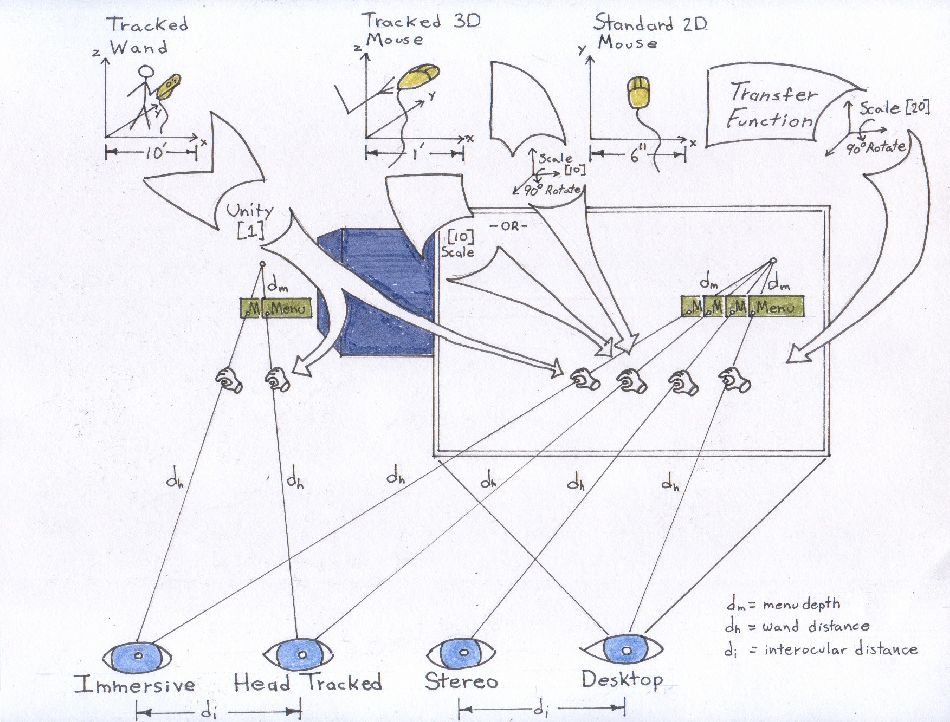 Tracked
Wand
z
Y
x
10'
Tracked 3D
Mouse
z
Y
x
1'
Standard 2D
Mouse
Y
x
6"
Transfer
Function
Scale [20]
90° Rotate
Scale
[10]
90° Rotate
Unity
[1]
[10]
Scale
-OR-
dm
M Menu
dm dm
M M M Menu
dh
dh
dh
dh
dh
dh
dm = menu depth
dh = wand distance
di = interocular distance
Immersive
Head Tracked
Stereo
Desktop
di
di